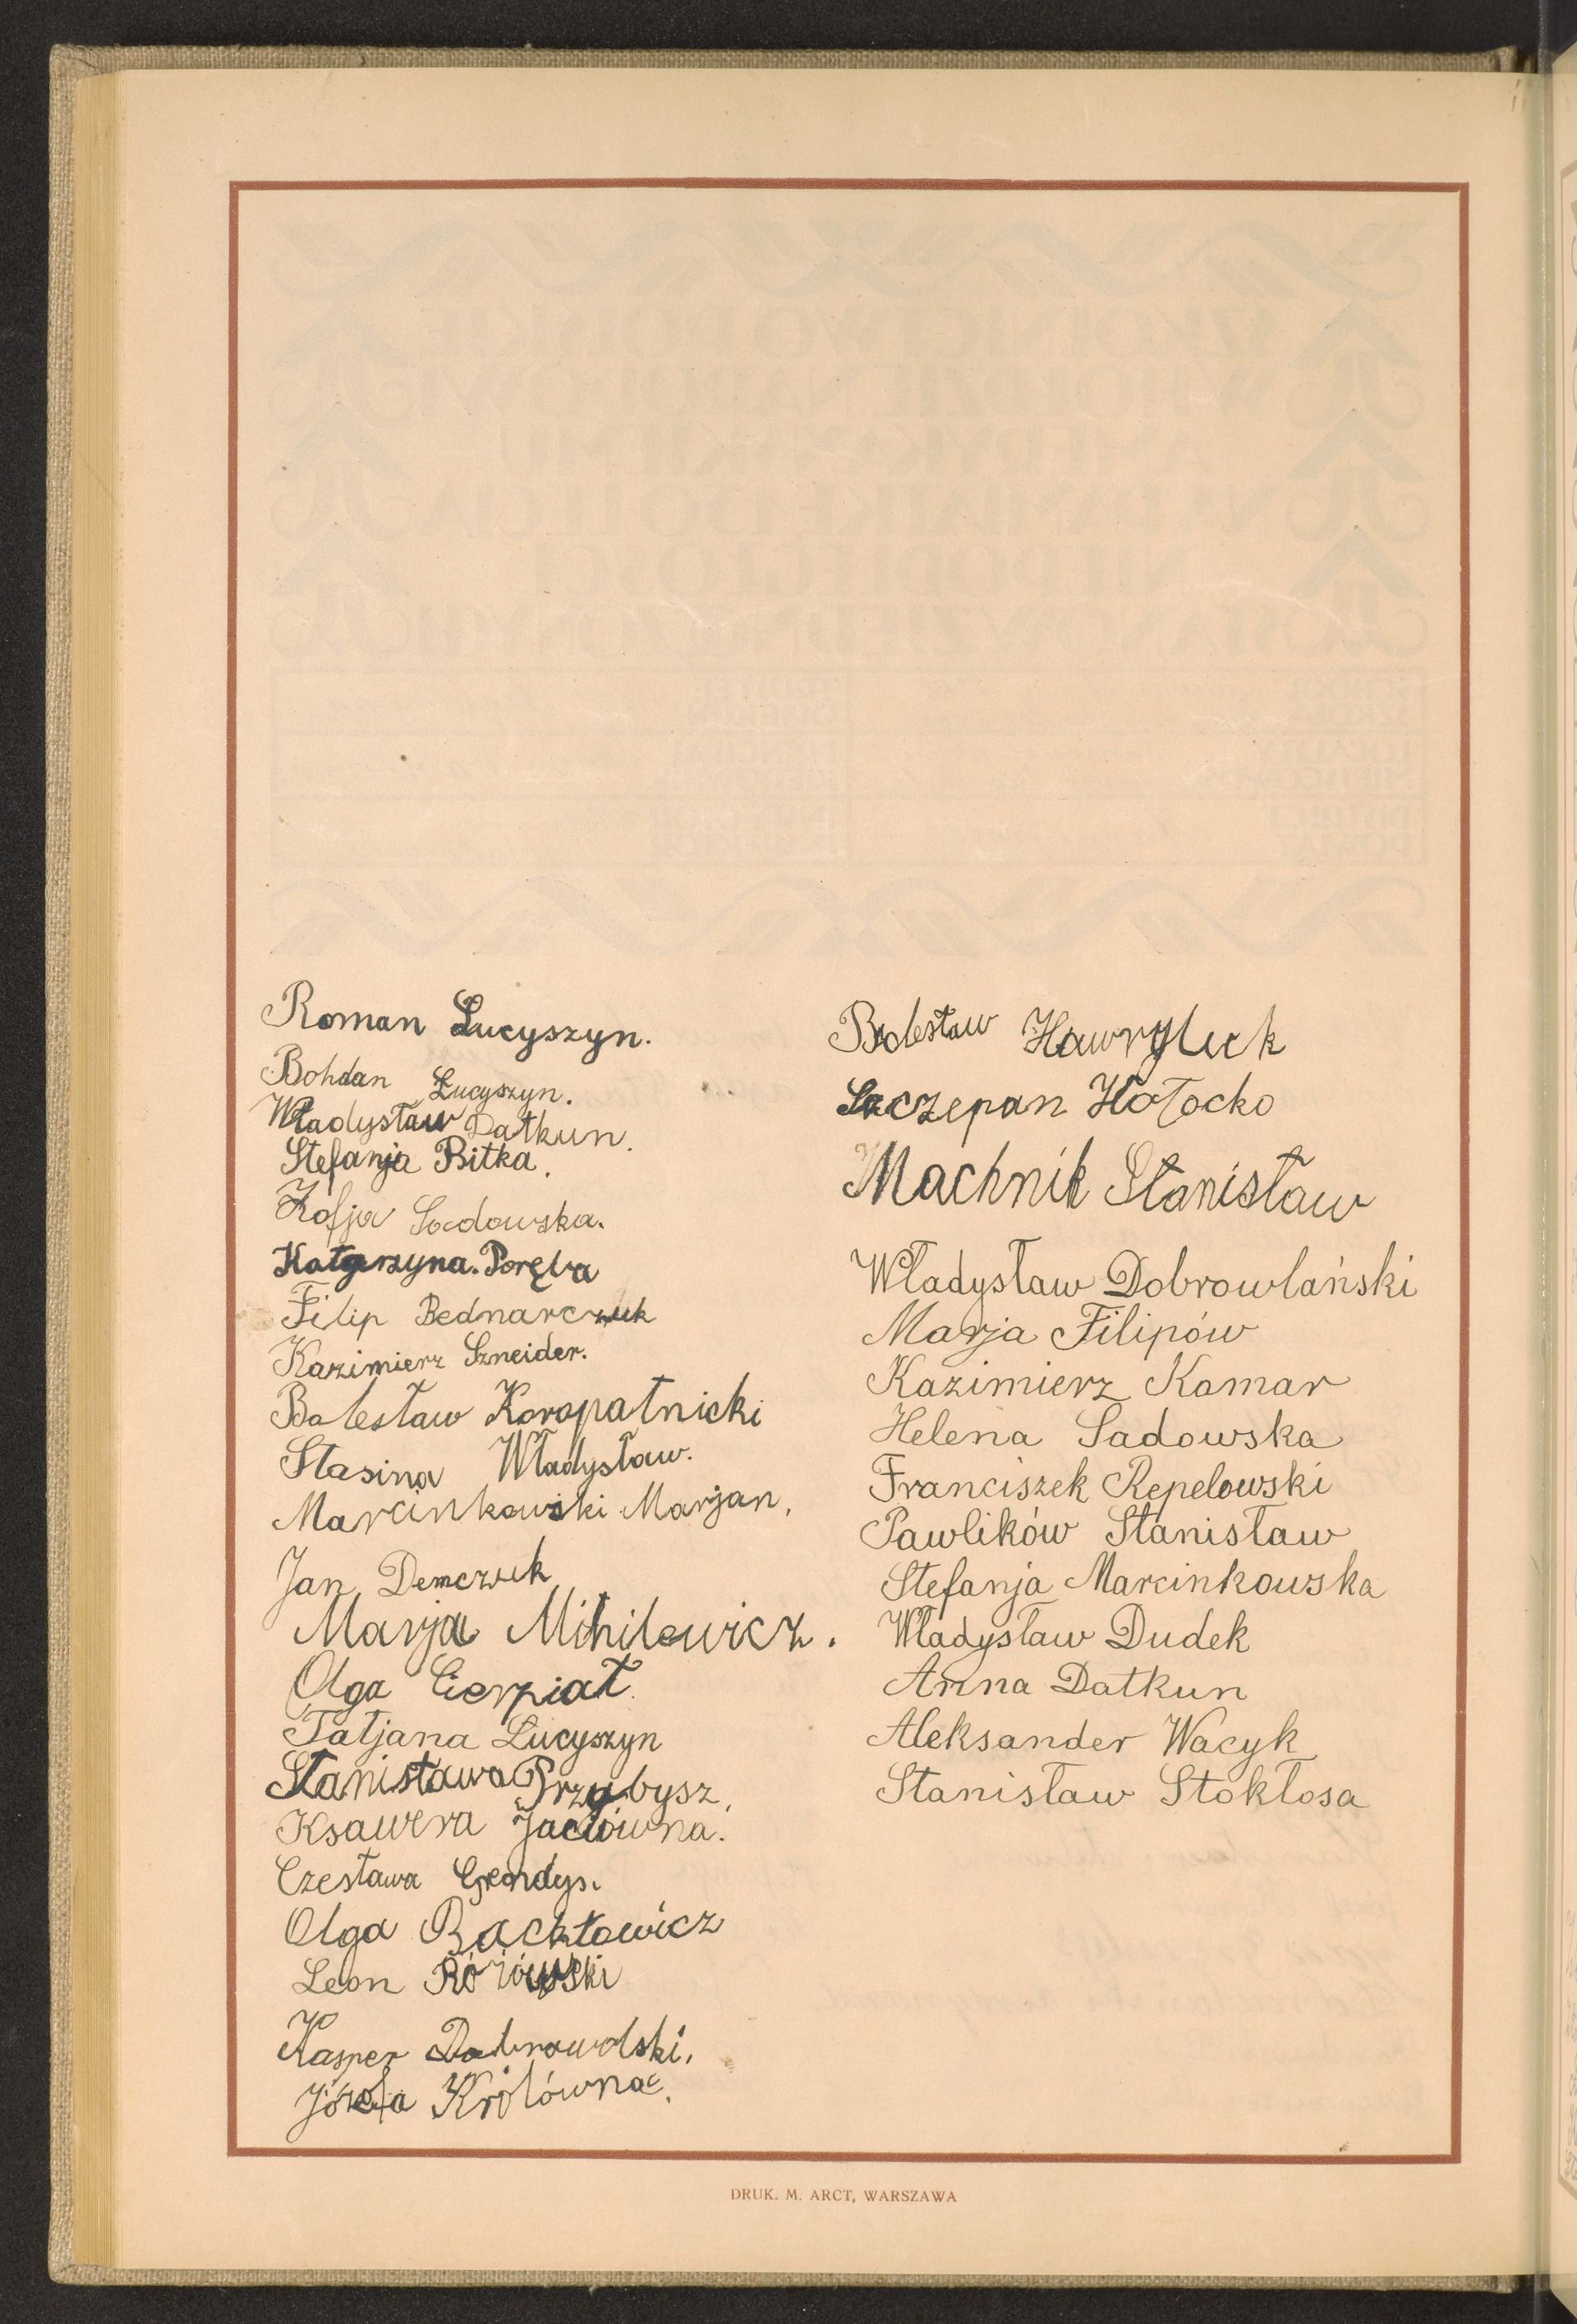 Roman Łucyszyn.
Bohdan Łucyszyn.
Władysław Datkun.
Stefanja Bitka.
Zofja Sadowska.
Katarzyna Poręba
Filip Bednarczuk
Kazimierz Szneider.
Bolesław Koropatnicki
Stasina Władysław.
Marcinkowski Marjan.
Jan Demczuk
Marja Mihilewicz.
Olga Cierpiał.
Tatjana Łucyszyn
Stanisława Przybysz.
Ksawera Jaciówna.
Czesława Gendys.
Olga Bachtowicz
Leon Różówski
Kasper Dobrowolski.
Józefa Królówna.
Bolesław Hawryluk
Szczepan Hołocko
Machnik Stanisław
Władysław Dobrowlański
Marja Filipów
Kazimierz Komar
Helena Sadowska
Franciszek Repelowski
Pawlików Stanisław
Stefanja Marcinkowska
Władysław Dudek
Anna Datkun
Aleksander Wacyk
Stanisław Stokłosa
DRUK. M. ARCT, WARSZAWA